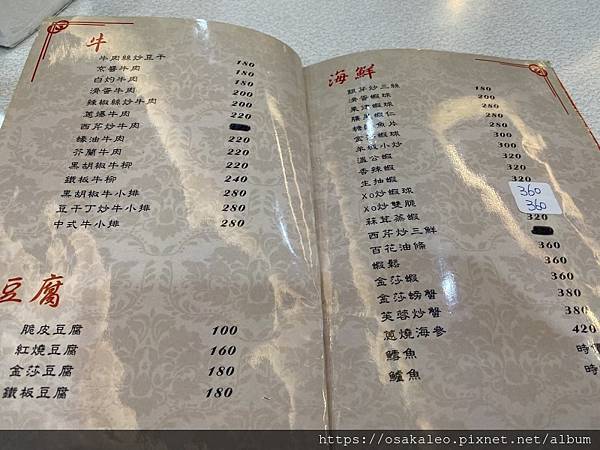 牛
牛肉絲炒豆干 180
京醬牛肉 180
白灼牛肉 180
滑蛋牛肉 200
辣椒絲炒牛肉 200
蔥爆牛肉 220
西炸炒牛肉
蠔油牛肉 220
芥蘭牛肉 220
黑胡椒牛柳 220
鐵板牛柳 240
黑胡椒牛小排 280
豆干丁炒牛小排 280
中式牛小排 280
豆腐
脆皮豆腐 100
紅燒豆腐 160
金莎豆腐 180
鐵板豆腐 180
海鮮
銀芽炒三絲 180
滑蛋蝦球 200
果律蝦球 280
腰果蝦仁 280
魚片 280
蝦球 300
韭蝦小炒 300
溫公蝦 320
香辣蝦 320
生抽蝦 320
XO炒蝦球 360
XO炒雙脆 360
蒜茸蒸蝦 320
西芹炒三鮮
百花油條 360
蝦鬆 360
金莎蝦 360
金莎螃蟹 380
芙蓉炒蟹 380
蔥燒海參 420
鱈魚 時
鱸魚 時
https://osakaleo.pixnet.net/album